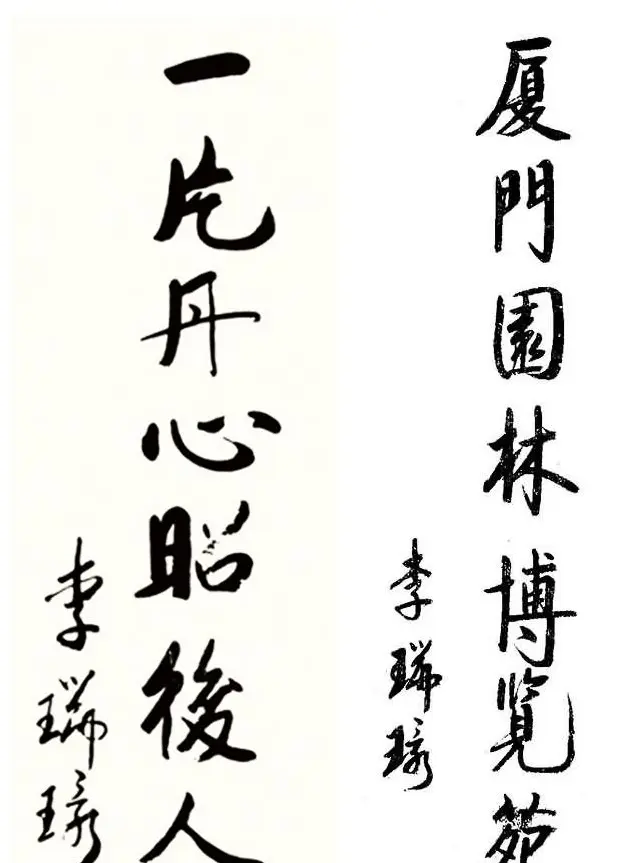 厦門園林博覽苑
李瑞環
一片丹心昭後人
李瑞環